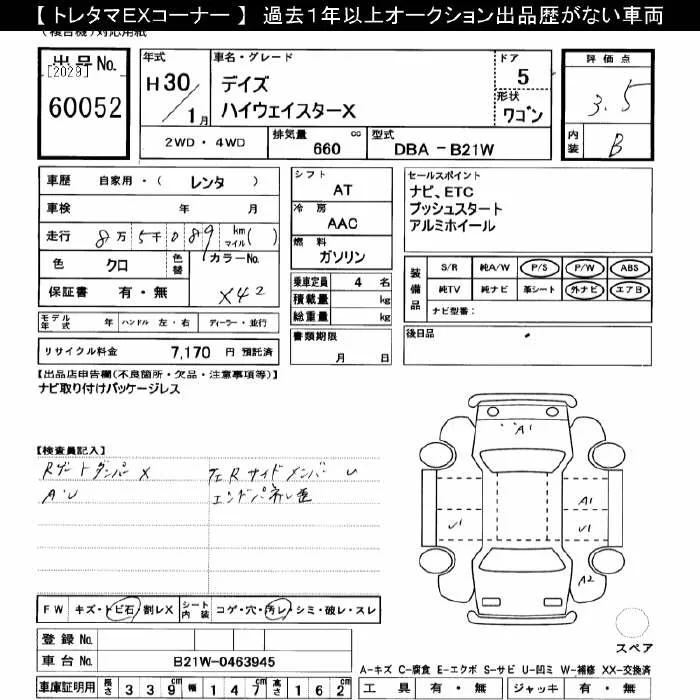 【 トレタマEXコーナー 】 過去1年以上オークション出品歴がない車両
(複合機)対応用紙
出品No.
[2029]
60052
年式
H30/1月
車名・グレード
デイズ
ハイウェイスターX
ドア
5
形状
ワゴン
2WD・4WD
排気量 cc
660
型式
DBA -B21W
評価点
3.5
内装 B
車歴 自家用・( レンタ )
車検 年 月
走行 8万5千089 km マイル( )
色 クロ 色替 カラーNo.
X42
保証書 有・無
モデル年式 年 ハンドル 左・右 ディーラー・並行
リサイクル料金 7,170 円 預託済
シフト
AT
冷房
AAC
燃料
ガソリン
乗車定員 4 名
積載量 kg
総重量 kg
書類期限
月 日
セールスポイント
ナビ、ETC
プッシュスタート
アルミホイール
装備品
S/R 純A/W P/S P/W ABS
純TV 純ナビ 革シート 外ナビ エアB
ナビ型番:
後日品
【出品店申告欄(不良箇所・欠品・注意事項等)】
ナビ取り付けパッケージレス
【検査員記入】
Rゲートダンパー X
A・U
左Rサイドメンバー U
エンドパネル歪
A1
A1
U1
U1
A2
スペア
FW キズ・トビ石・割レX シート内装 コゲ・穴・汚レ・シミ・破レ・スレ
登録 No.
車台 No. B21W-0463945
車庫証明用 長さ 339cm 幅 147cm 高さ 162cm
A-キズ C-腐食 E-エクボ S-サビ U-凹ミ W-補修 XX-交換済
工具 有・無 ジャッキ 有・無